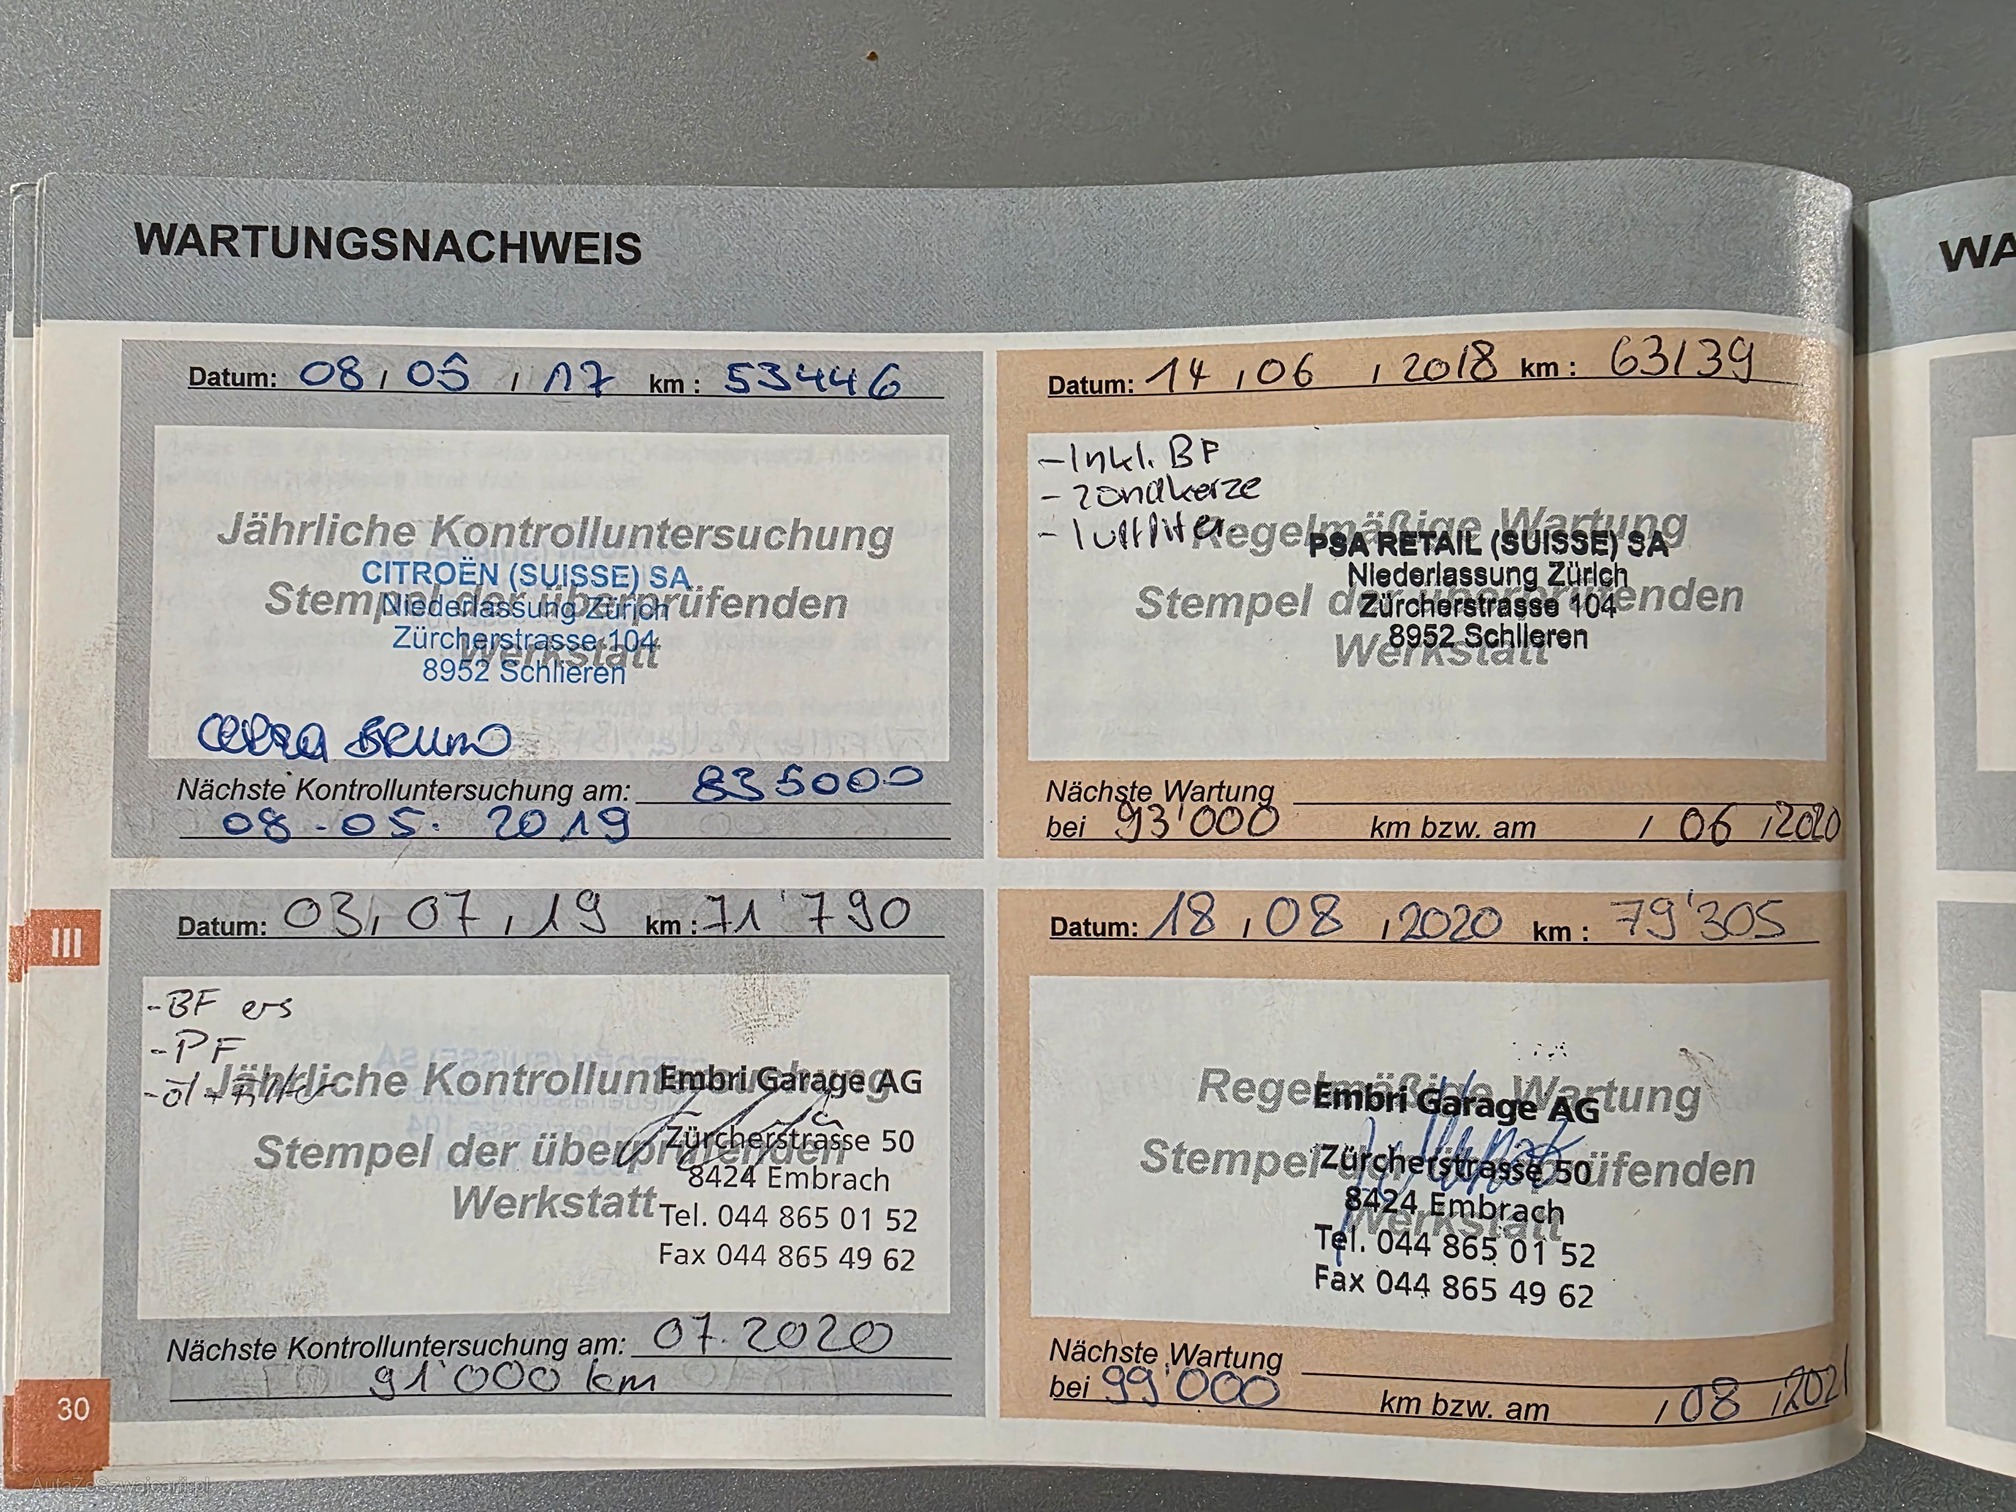 WARTUNGSNACHWEIS
WA
Datum: 08 , 05 , 17 km : 53446
Jährliche Kontrolluntersuchung
Stempel der überprüfenden
Werkstatt
CITROËN (SUISSE) SA
Niederlassung Zürich
Zürcherstrasse 104
8952 Schlieren
Bruno
Nächste Kontrolluntersuchung am: 835000
08.05. 2019
Datum: 14 , 06 , 2018 km : 63139
- Inkl. BF
- zondkerze
- luftfilter.
Regelmäßige Wartung
Stempel der überprüfenden
Werkstatt
PSA RETAIL (SUISSE) SA
Niederlassung Zürich
Zürcherstrasse 104
8952 Schlieren
Nächste Wartung
bei 93'000 km bzw. am / 06 , 2020
Datum: 03 , 07 , 19 km : 71'790
- BF ers
- PF
- öl + Filter
Jährliche Kontrolluntersuchung
Stempel der überprüfenden
Werkstatt
Embri Garage AG
Zürcherstrasse 50
8424 Embrach
Tel. 044 865 01 52
Fax 044 865 49 62
Nächste Kontrolluntersuchung am: 07.2020
91'000 km
Datum: 18 , 08 , 2020 km : 79'305
Regelmäßige Wartung
Stempel der überprüfenden
Werkstatt
Embri Garage AG
Zürcherstrasse 50
8424 Embrach
Tel. 044 865 01 52
Fax 044 865 49 62
Nächste Wartung
bei 99'000 km bzw. am / 08 , 2021
III
30
AutaZeSzwajcarii.pl